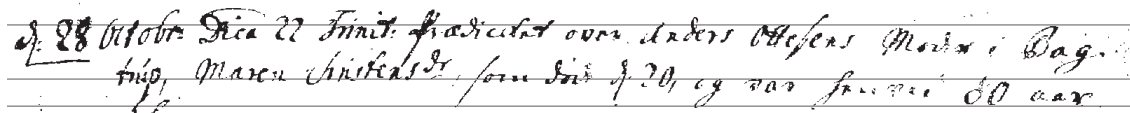 d. 28 Octobr. Dica 22 Trinit. Prædicket over Anders Ottesens Moder i Bag-
trup, Maren Christensdr, som døde d. 20, og var henved 80 aar